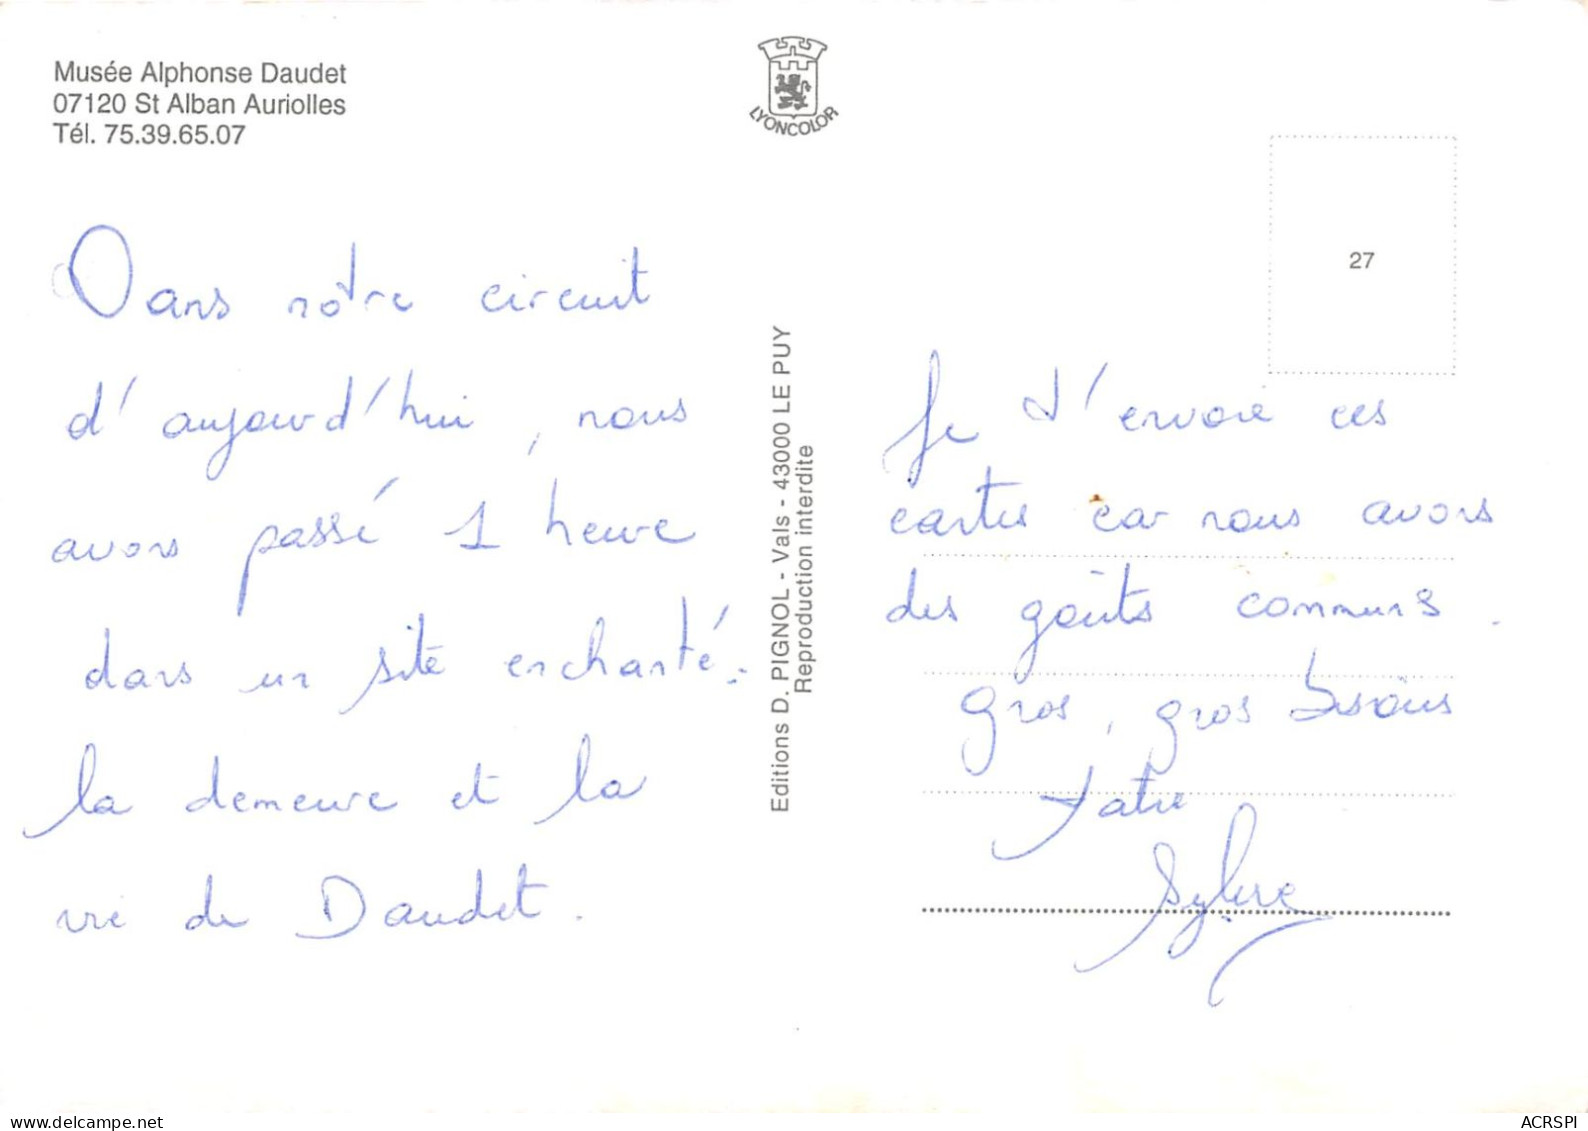 Musée Alphonse Daudet
07120 St Alban Auriolles
Tél. 75.39.65.07
LYONCOLOR
27
Dans notre circuit
d'aujourd'hui, nous
avons passé 1 heure
dans un site enchanté.
la demeure et la
vie de Daudet.
Editions D. PIGNOL - Vals - 43000 LE PUY
Reproduction interdite
Je t'envoie ces
cartes car nous avons
des goûts communs.
gros, gros bisous
Sylvie
www.delcampe.net
ACRSPI